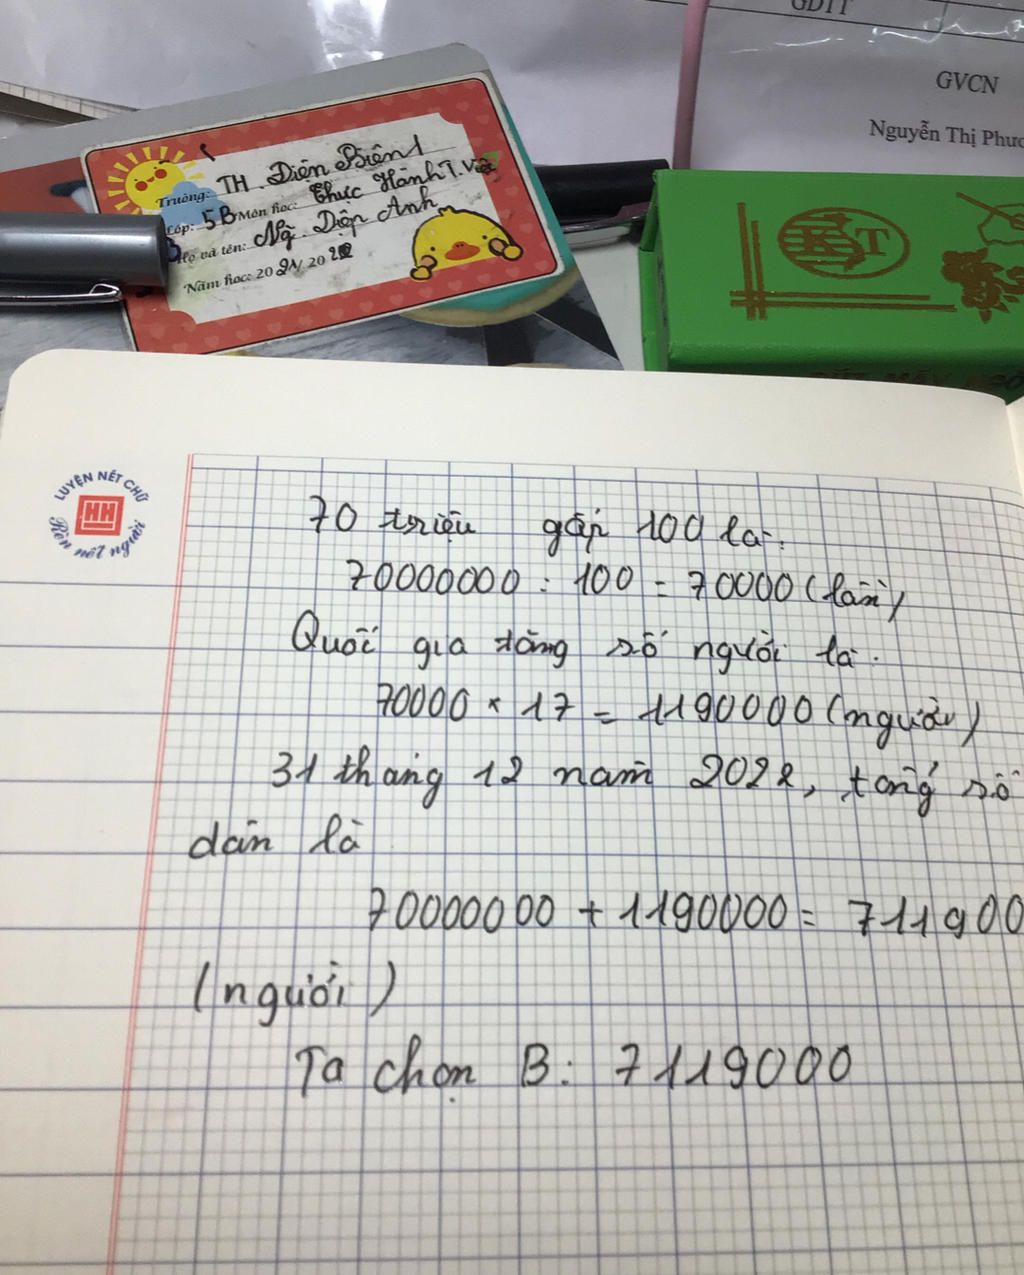 GDTT
GVCN
Nguyễn Thị Phươ
Trường: TH. Điện Biên 1
Lớp: 5B Môn học: Thực Hành T. Việt
Họ và tên: Ng. Diệp Anh
Năm học: 2021 20
KT
LUYỆN NÉT CHỮ
HH
Rèn nết người
70 triệu gấp 100 là:
70000000 : 100 = 70000 (lần)
Quốc gia tăng số người là.
70000 × 17 = 1190000 (người)
31 tháng 12 năm 2022, tổng số
dân là
70000000 + 1190000 = 711900
(người)
Ta chọn B: 7119000